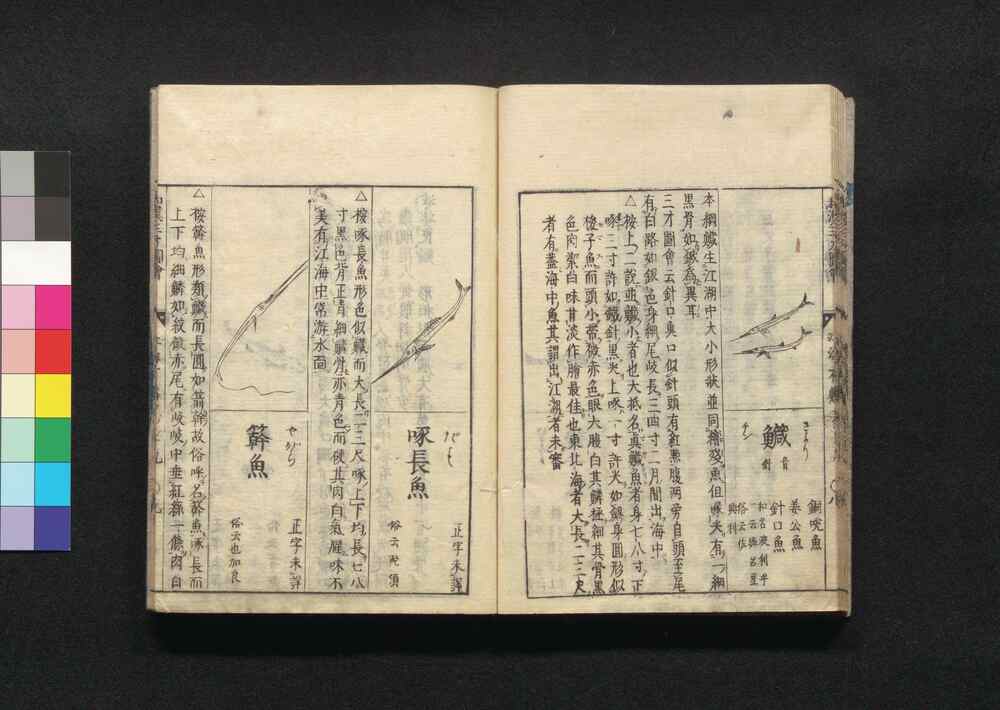 さより
鱵
音
針
銅哾魚
姜公魚
針口魚
和名波利乎
一云與呂豆
俗云佐
與利
本綱鱵生江湖中大小形狀並同鱠殘魚但喙尖有一細
黒骨如鍼爲異耳
三才圖會云針口魚口似針頭有紅㸃腹兩旁自頭至尾
有白路如銀色身細尾岐長三四寸二月間出海中
△按上二說並鱵小者也大抵名眞鱵魚者身七八寸正
圓喙二三寸許如鐵針黒光上喙一寸許
色肉潔白味甘淡作膾最佳也東北海者大長二三尺
者有蓋海中魚其謂出江湖者未審
啄長魚
正字未詳
△按啄長魚形色似鱵而大長二三尺啄上下均長七八
寸黒色背正青細鱗骨亦青色而硬其肉白氣腥味不
美有江海中常游水面
やがら
簳魚
正字未詳
俗云也加良
△按簳魚形類鱵而長圓如箭簳故俗呼名於魚啄長而
上下均細鱗如紋銀赤尾有岐岐中垂紅絲一條肉白